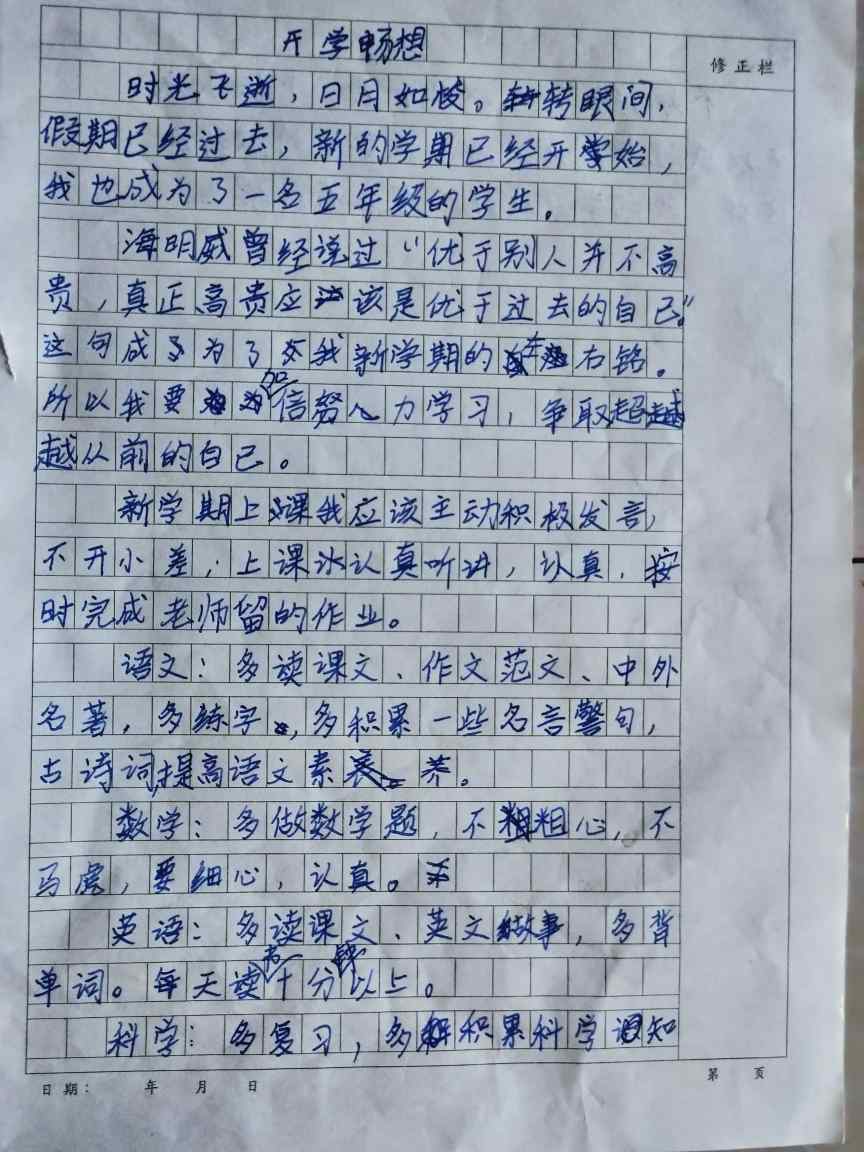 开学畅想
修正栏
时光飞逝，日月如梭。转眼间，
假期已经过去，新的学期已经开始，
我也成为了一名五年级的学生。
海明威曾经说过“优于别人并不高
贵，真正高贵应该是优于过去的自己。”
这句成为了我新学期的座右铭。
所以我要加倍努力学习，争取超
越从前的自己。
新学期上课我应该主动积极发言，
不开小差，上课认真听讲，认真，按
时完成老师留的作业。
语文：多读课文、作文范文、中外
名著，多练字，多积累一些名言警句，
古诗词，提高语文素养。
数学：多做数学题，不粗心，不
马虎，要细心，认真。
英语：多读课文、英文故事，多背
单词。每天读书十分钟以上。
科学：多复习，多积累科学知
日期： 年 月 日
第 页